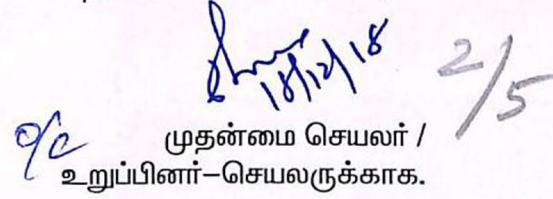 18/12/18
2/5
o/c முதன்மை செயலர் /
உறுப்பினர்–செயலருக்காக.